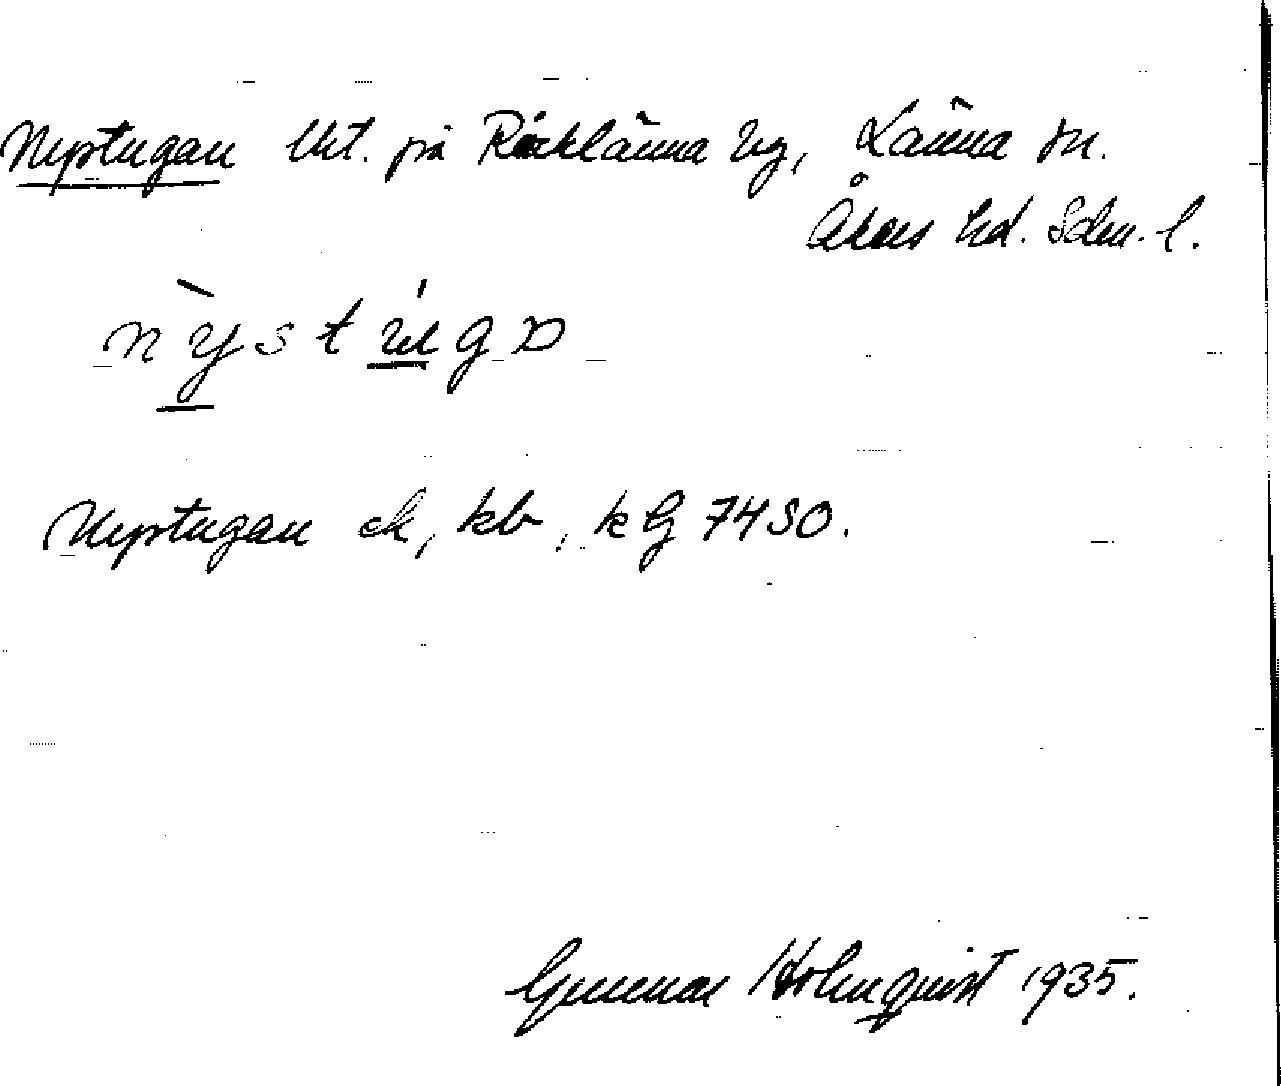 Nystugan Uht. på Räcklänna äg, Länna sn.
Åkers hd. Sdm. l.
nỳstúgɒ
Nystugan ek, kb, kfg 74 SO.
Gunnar Holmquist 1935.